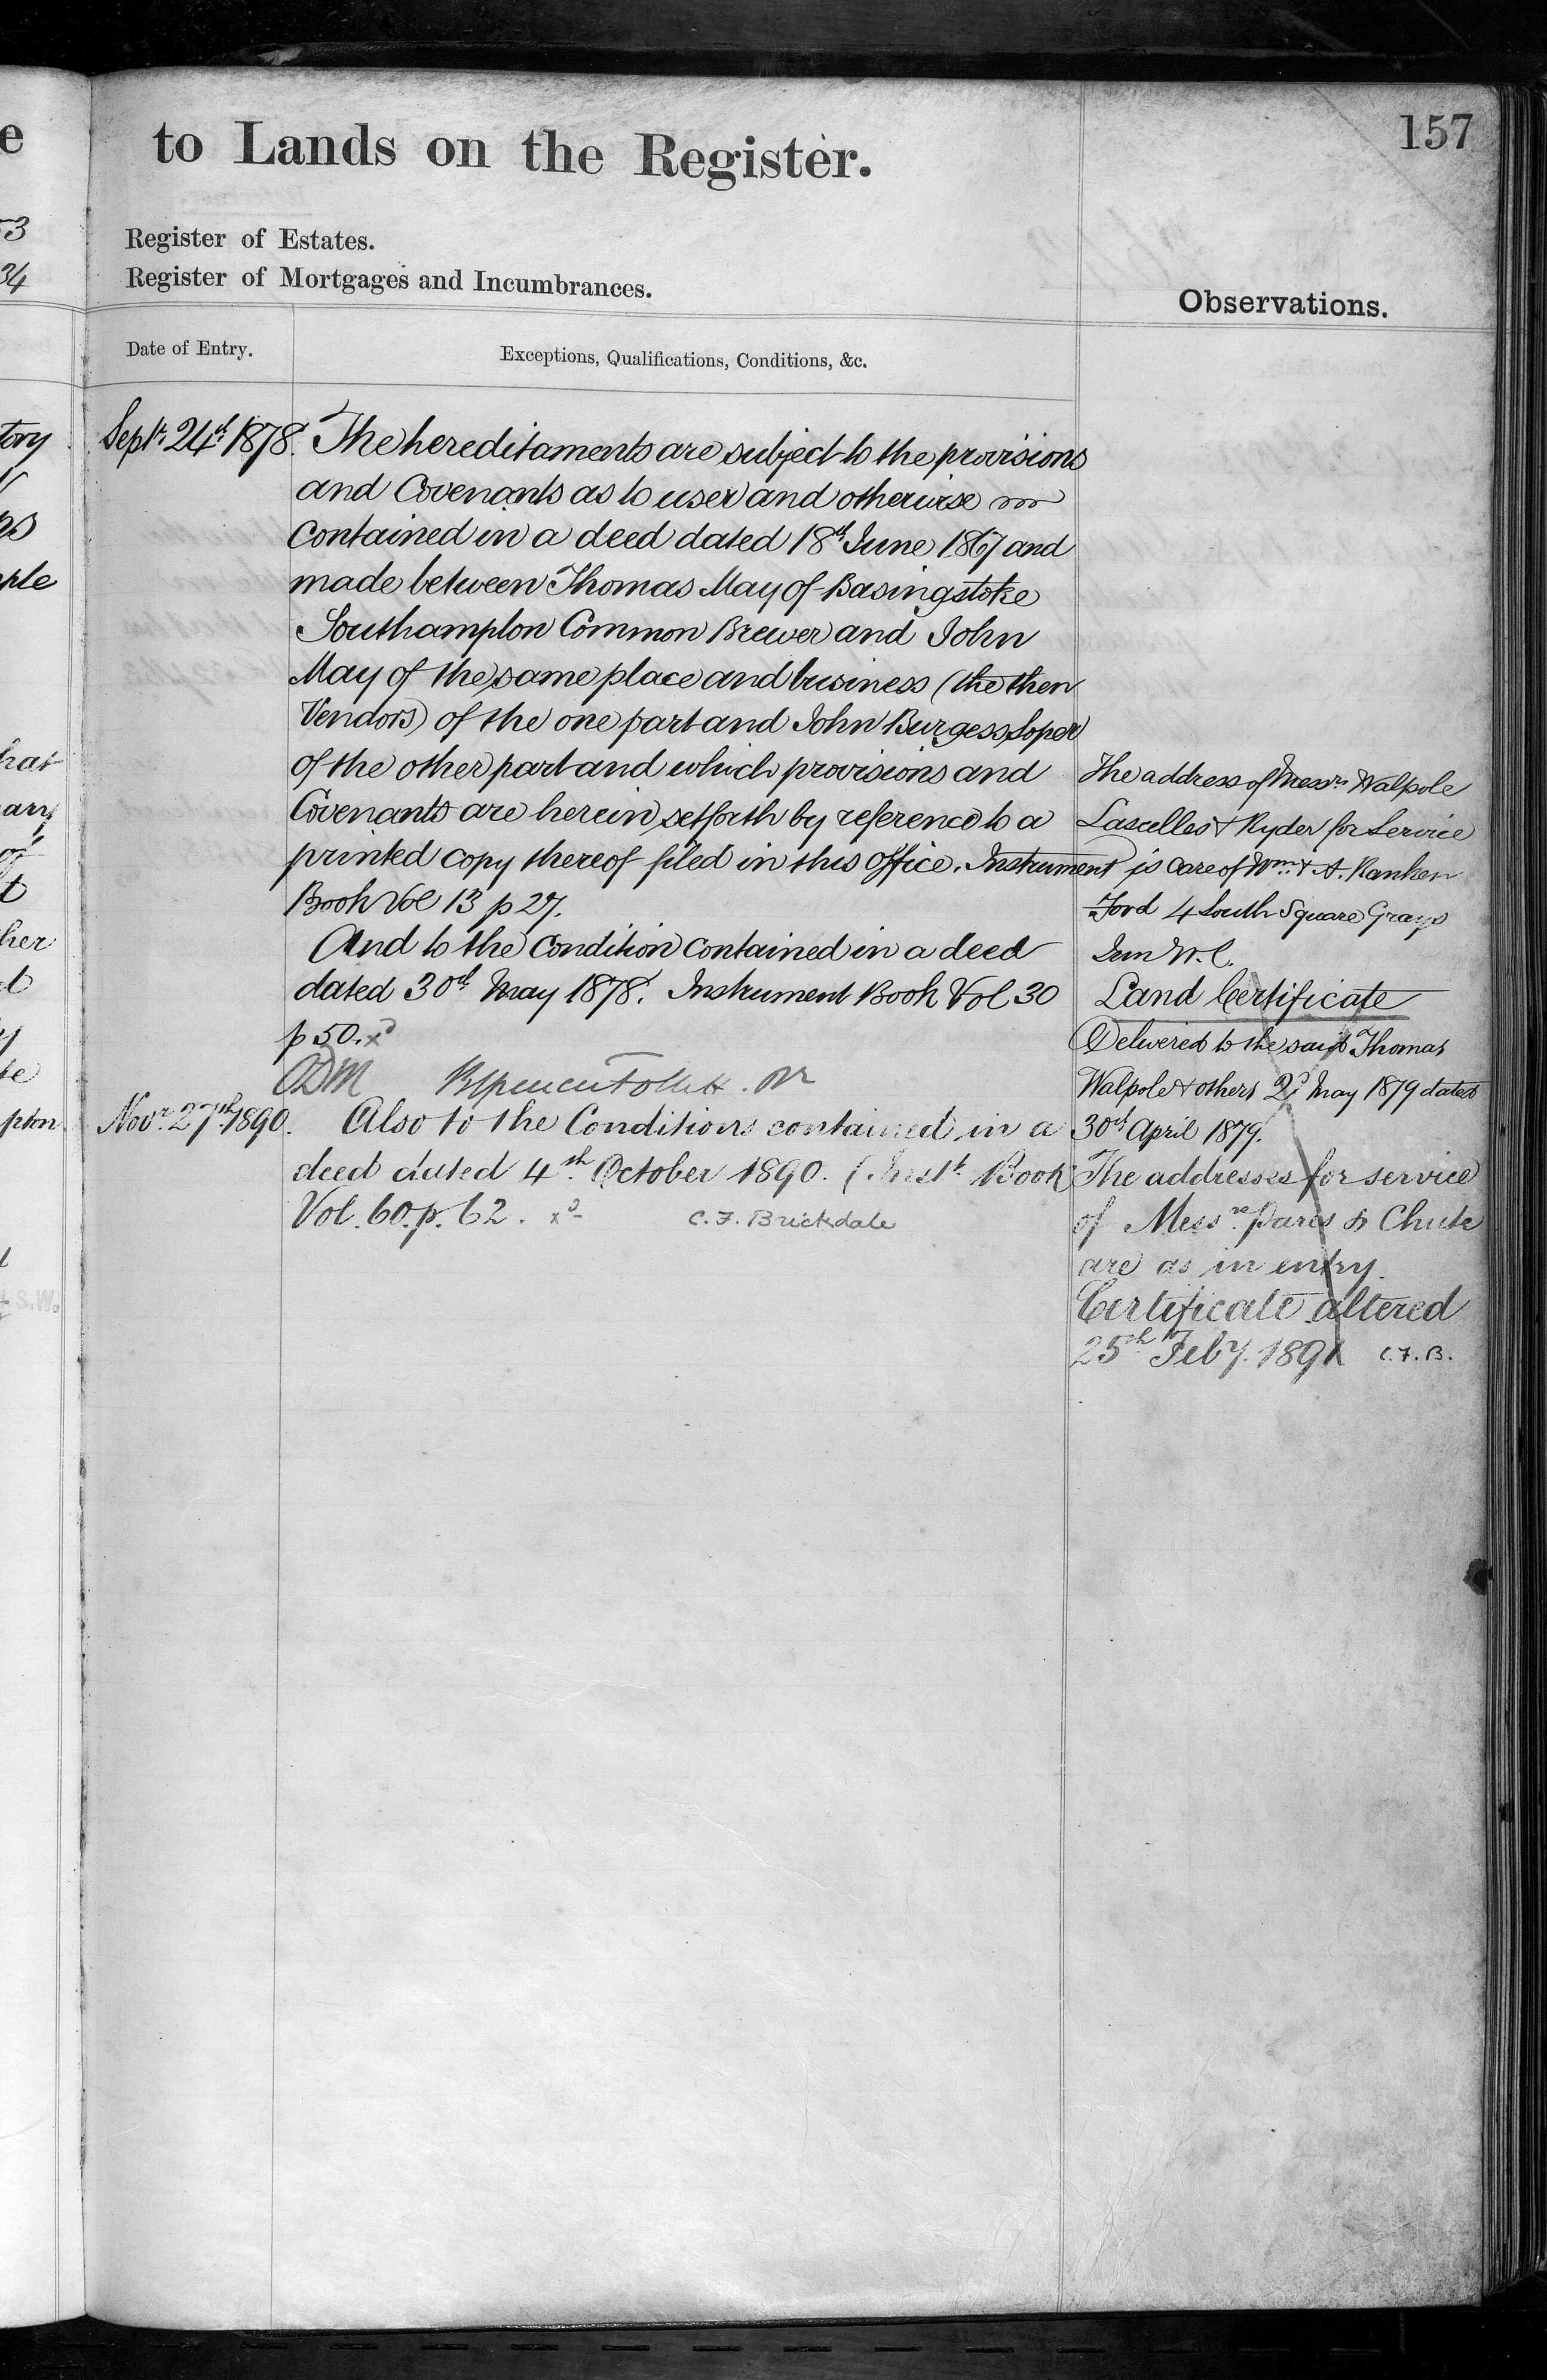 157
to Lands on the Register.
Register of Estates.
Register of Mortgages and Incumbrances.
Observations.
Date of Entry.
Exceptions, Qualifications, Conditions, &c.
Sept. 24th 1878. The hereditaments are subject to the provisions
and Covenants as to user and otherwise
contained in a deed dated 18th June 1867 and
made between Thomas May of Basingstoke
Southampton Common Brewer and John
May of the same place and business (the then
Vendors) of the one part and John Burgess Soper
of the other part and which provisions and
Covenants are herein set forth by reference to a
printed copy thereof filed in this office. Instrument
Book Vol 13 p 27.
And to the Condition contained in a deed
dated 30th May 1878. Instrument Book Vol 30
p 50. xd
Novr. 27th 1890. Also to the Conditions contained in a
deed dated 4th October 1890. (Inst. Book
Vol. 60. p. 62. xd
C. F. Brickdale
The address of Messrs Walpole
Lascelles & Ryder for Service
is care of Wm. & A. Ranken
Ford 4 South Square Grays
Inn W.C.
Land Certificate
Delivered to the said Thomas
Walpole & others 2d May 1879 dated
30th April 1879.
The addresses for service
of Messrs. Pares & Chute
are as in entry.
Certificate altered
25th Feby. 1891 C. F. B.
53
34
tory
ple
hat
ary
of
t
her
pton
S.W.